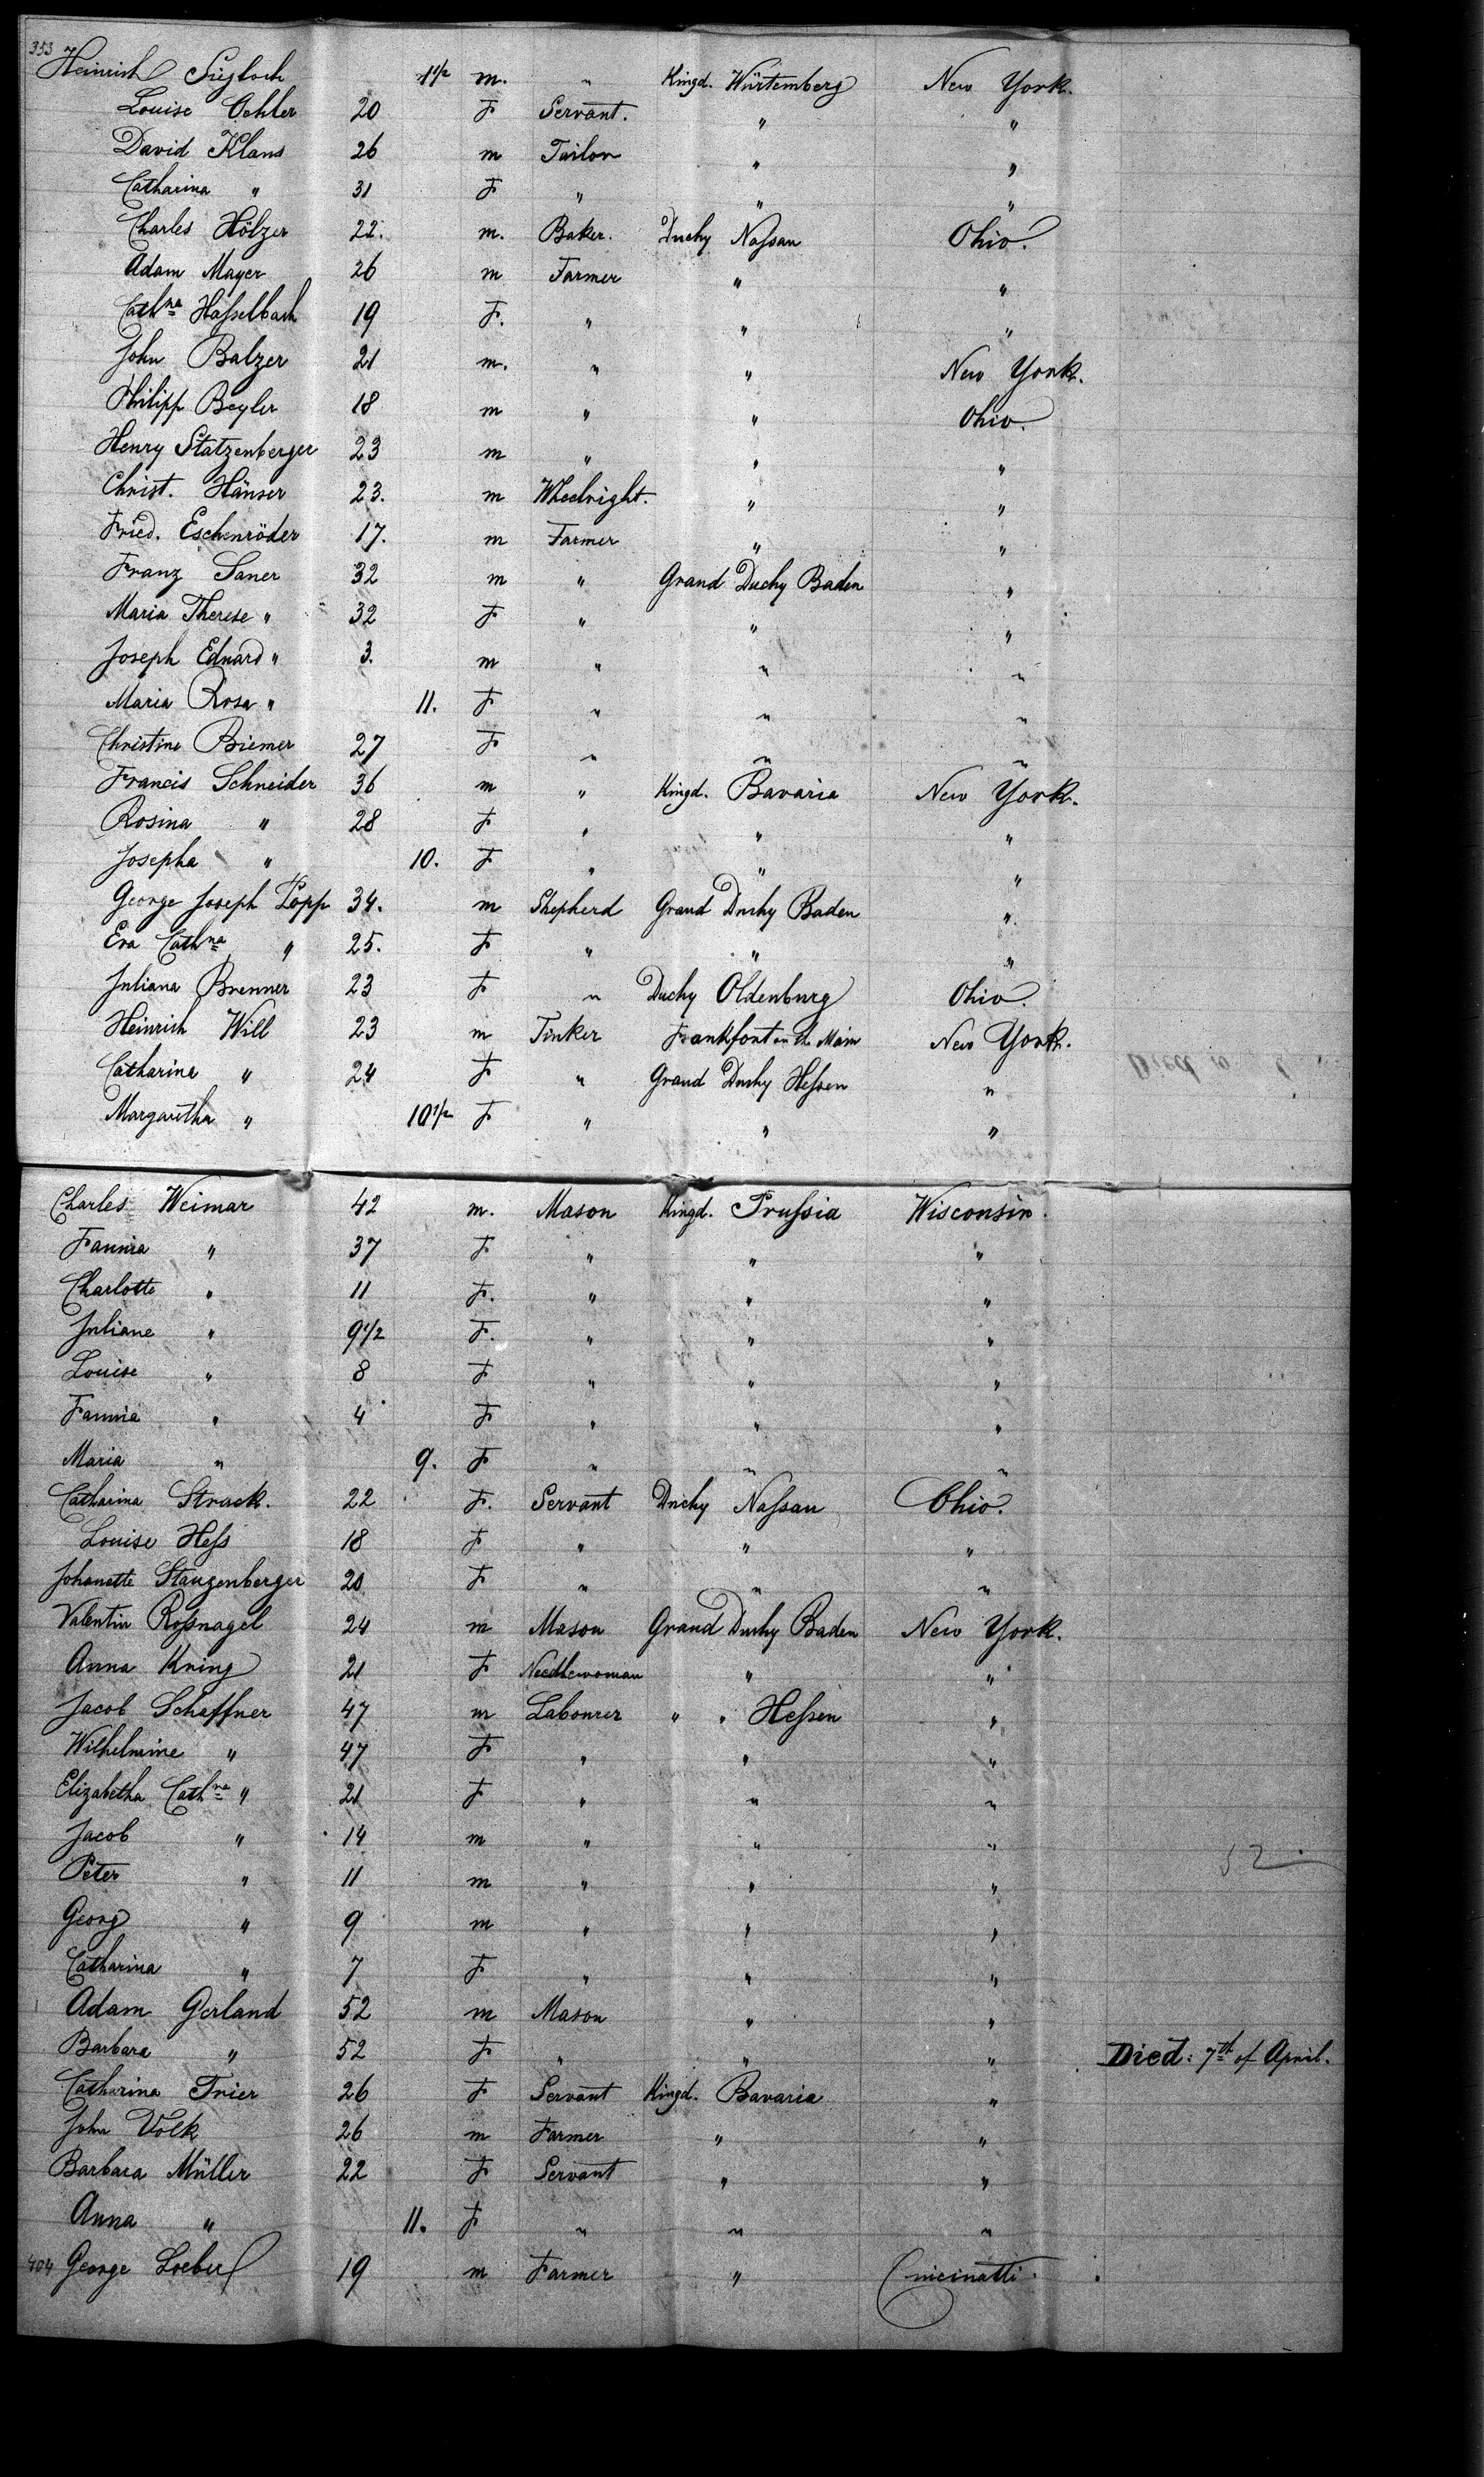 353 Heinrich Siegloch 1 1/2 m. " Kingd. Würtemberg New York.
Louise Oehler 20 F Servant. " "
David Klans 26 m Tailor " "
Catharina " 31 F " " "
Charles Hölzer 22. m. Baker. Duchy Naſsau Ohio.
Adam Mayer 26 m Farmer " "
Cathna Haſselbach 19 F. " " "
John Balzer 21 m. " " New York.
Philipp Beyler 18 m " " Ohio.
Henry Statzenberger 23 m " " "
Christ. Hänser 23. m Wheelright. " "
Fried. Eschenröder 17. m Farmer " "
Franz Saner 32 m " Grand Duchy Baden "
Maria Therese " 32 F " " "
Joseph Eduard " 3. m " " "
Maria Rosa " 11. F " " "
Christine Biemer 27 F " " "
Francis Schneider 36 m " Kingd. Bavaria New York.
Rosina " 28 F " " "
Josepha " 10. F " " "
George Joseph Popp 34. m Shepherd Grand Duchy Baden "
Eva Cathna " 25. F " " "
Juliana Brenner 23 F " Duchy Oldenburg Ohio.
Heinrich Will 23 m Tinker Frankfort on the Main New York.
Catharina " 24 F " Grand Duchy Heſsen "
Margaretha " 10 1/2 F " " "
Charles Weimar 42 m. Mason Kingd. Pruſsia Wisconsin.
Fannia " 37 F " " "
Charlotte " 11 F. " " "
Juliane " 9 1/2 F. " " "
Louise " 8 F " " "
Fannia " 4 F " " "
Maria " 9. F " " "
Catharina Strack. 22 F. Servant Duchy Naſsau Ohio.
Louise Heſs 18 F " " "
Johanette Stangenberger 20 F " " "
Valentin Roſsnagel 24 m Mason Grand Duchy Baden New York.
Anna Kring 21 F Needlewoman " "
Jacob Schaffner 47 m Labourer " " Heſsen "
Wilhelmine " 47 F " " "
Elizabetha Cathna " 21 F " " "
Jacob " 14 m " " "
Peter " 11 m " " "
Georg " 9 m " " "
Catharina " 7 F " " "
Adam Gerland 52 m Mason " "
Barbara " 52 F " " " Died: 7th of April.
Catharina Trier 26 F Servant Kingd. Bavaria "
John Volk 26 m Farmer " "
Barbara Müller 22 F Servant " "
Anna " 11. F " " "
404 George Loeber 19 m Farmer " Cincinatti